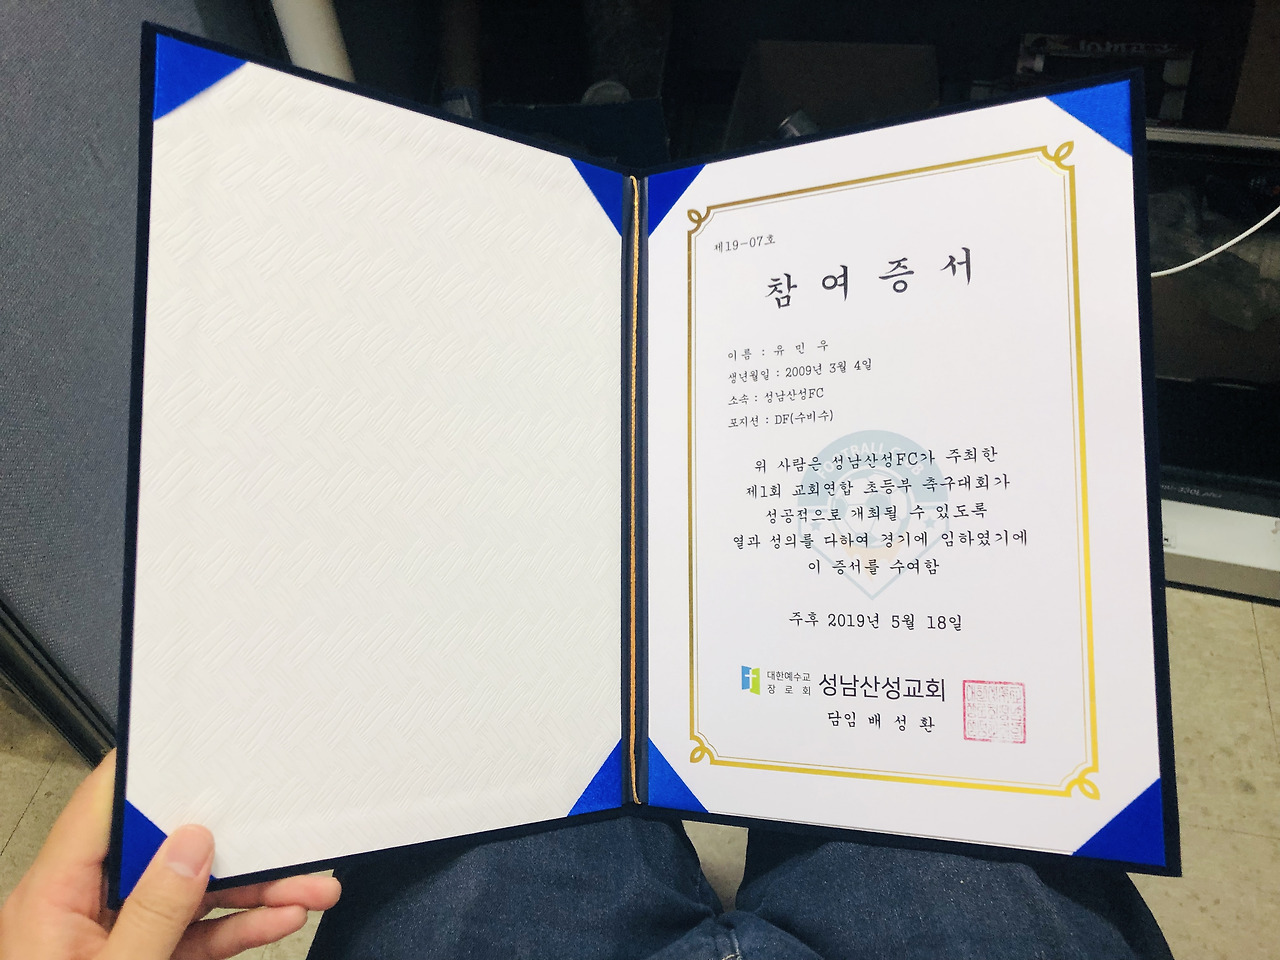 제19-07호
참 여 증 서
이름 : 유 민 우
생년월일 : 2009년 3월 4일
소속 : 성남산성FC
포지션 : DF(수비수)
위 사람은 성남산성FC가 주최한
제1회 교회연합 초등부 축구대회가
성공적으로 개최될 수 있도록
열과 성의를 다하여 경기에 임하였기에
이 증서를 수여함
주후 2019년 5월 18일
대한예수교
장 로 회
성남산성교회
담임 배 성 환